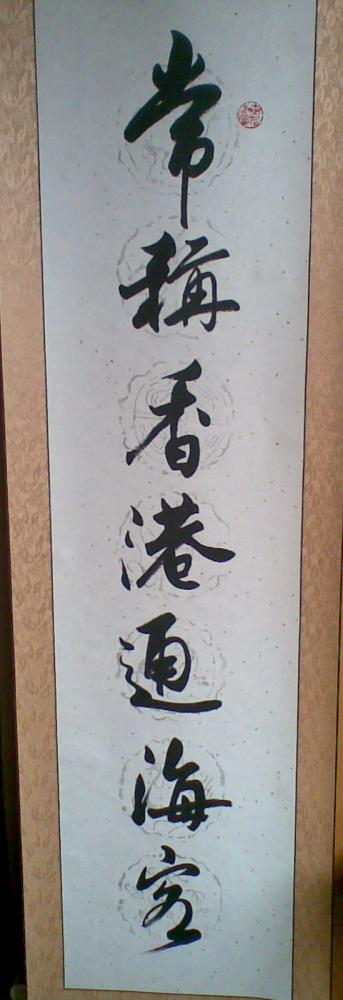 常稱香港通海客